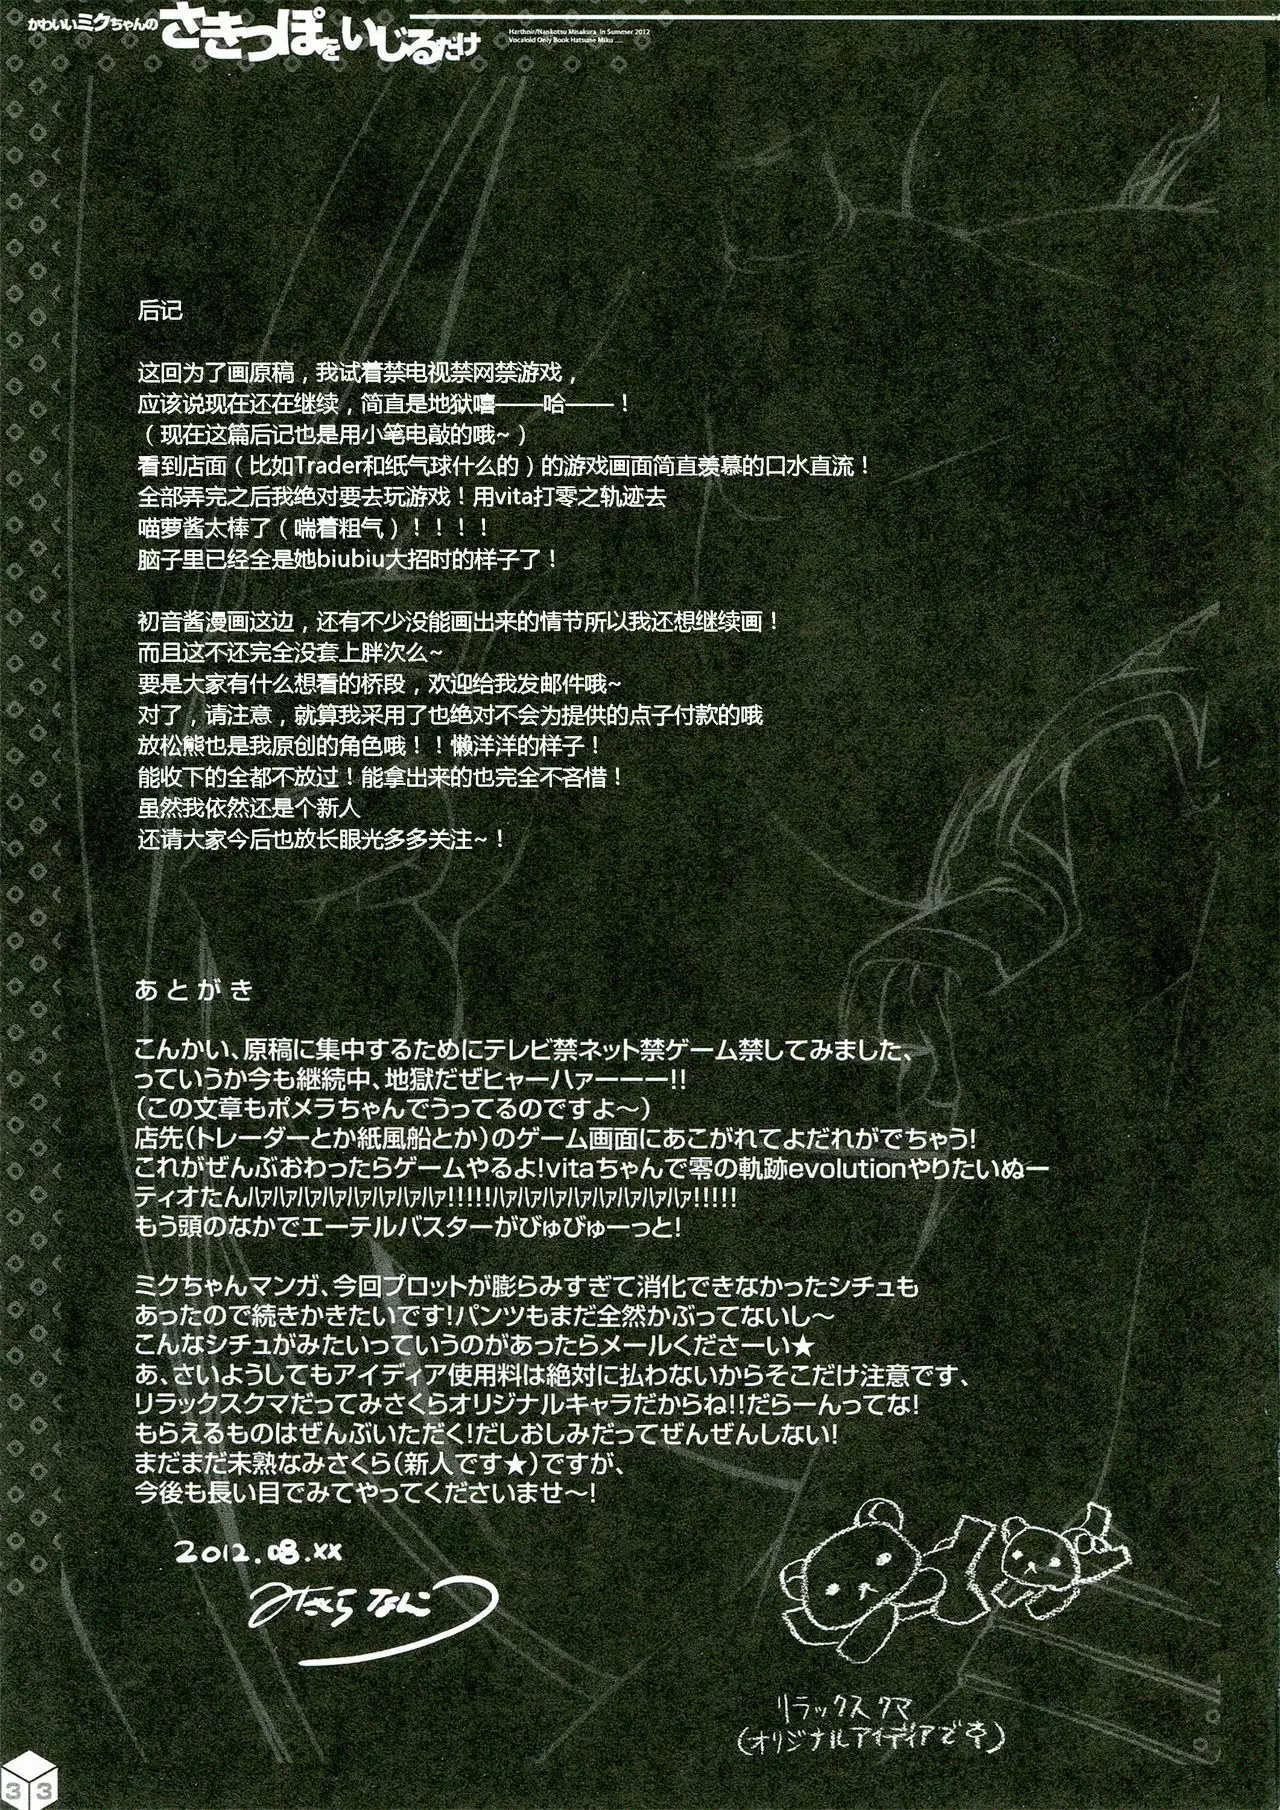 かわいいミクちゃんの
さきっぽをいじるだけ
Harthnir/Nankotsu Misakura In Summer 2012
Vocaloid Only Book Hatsune Miku ......
后记
这回为了画原稿，我试着禁电视禁网禁游戏，
应该说现在还在继续，简直是地狱嘻——哈——！
（现在这篇后记也是用小笔电敲的哦~）
看到店面（比如Trader和纸气球什么的）的游戏画面简直羡慕的口水直流！
全部弄完之后我绝对要去玩游戏！用vita打零之轨迹去
喵萝酱太棒了（喘着粗气）！！！！
脑子里已经全是她biubiu大招时的样子了！
初音酱漫画这边，还有不少没能画出来的情节所以我还想继续画！
而且这不还完全没套上胖次么~
要是大家有什么想看的桥段，欢迎给我发邮件哦~
对了，请注意，就算我采用了也绝对不会为提供的点子付款的哦
放松熊也是我原创的角色哦！！懒洋洋的样子！
能收下的全都不放过！能拿出来的也完全不吝惜！
虽然我依然还是个新人
还请大家今后也放长眼光多多关注~！
あとがき
こんかい、原稿に集中するためにテレビ禁ネット禁ゲーム禁してみました、
っていうか今も継続中、地獄だぜヒャーハァーーー!!
(この文章もポメラちゃんでうってるのですよ〜)
店先(トレーダーとか紙風船とか)のゲーム画面にあこがれてよだれがでちゃう!
これがぜんぶおわったらゲームやるよ!vitaちゃんで零の軌跡evolutionやりたいぬー
ティオたんﾊｧﾊｧﾊｧﾊｧﾊｧﾊｧﾊｧﾊｧ!!!!!ﾊｧﾊｧﾊｧﾊｧﾊｧﾊｧﾊｧﾊｧ!!!!!
もう頭のなかでエーテルバスターがびゅびゅーっと!
ミクちゃんマンガ、今回プロットが膨らみすぎて消化できなかったシチュも
あったので続きかきたいです!パンツもまだ全然かぶってないし〜
こんなシチュがみたいっていうのがあったらメールくださーい★
あ、さいようしてもアイディア使用料は絶対に払わないからそこだけ注意です、
リラックスクマだってみさくらオリジナルキャラだからね!!だらーんってな!
もらえるものはぜんぶいただく!だしおしみだってぜんぜんしない!
まだまだ未熟なみさくら(新人です★)ですが、
今後も長い目でみてやってくださいませ〜!
2012.08.XX
みさくらなんこつ
リラックスクマ
(オリジナルアイディアです)
33